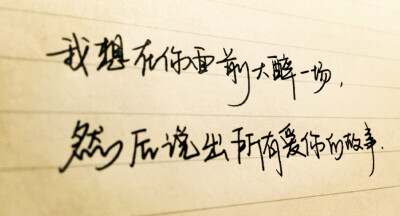 我想在你面前大醉一场,
然后说出所有爱你的故事.